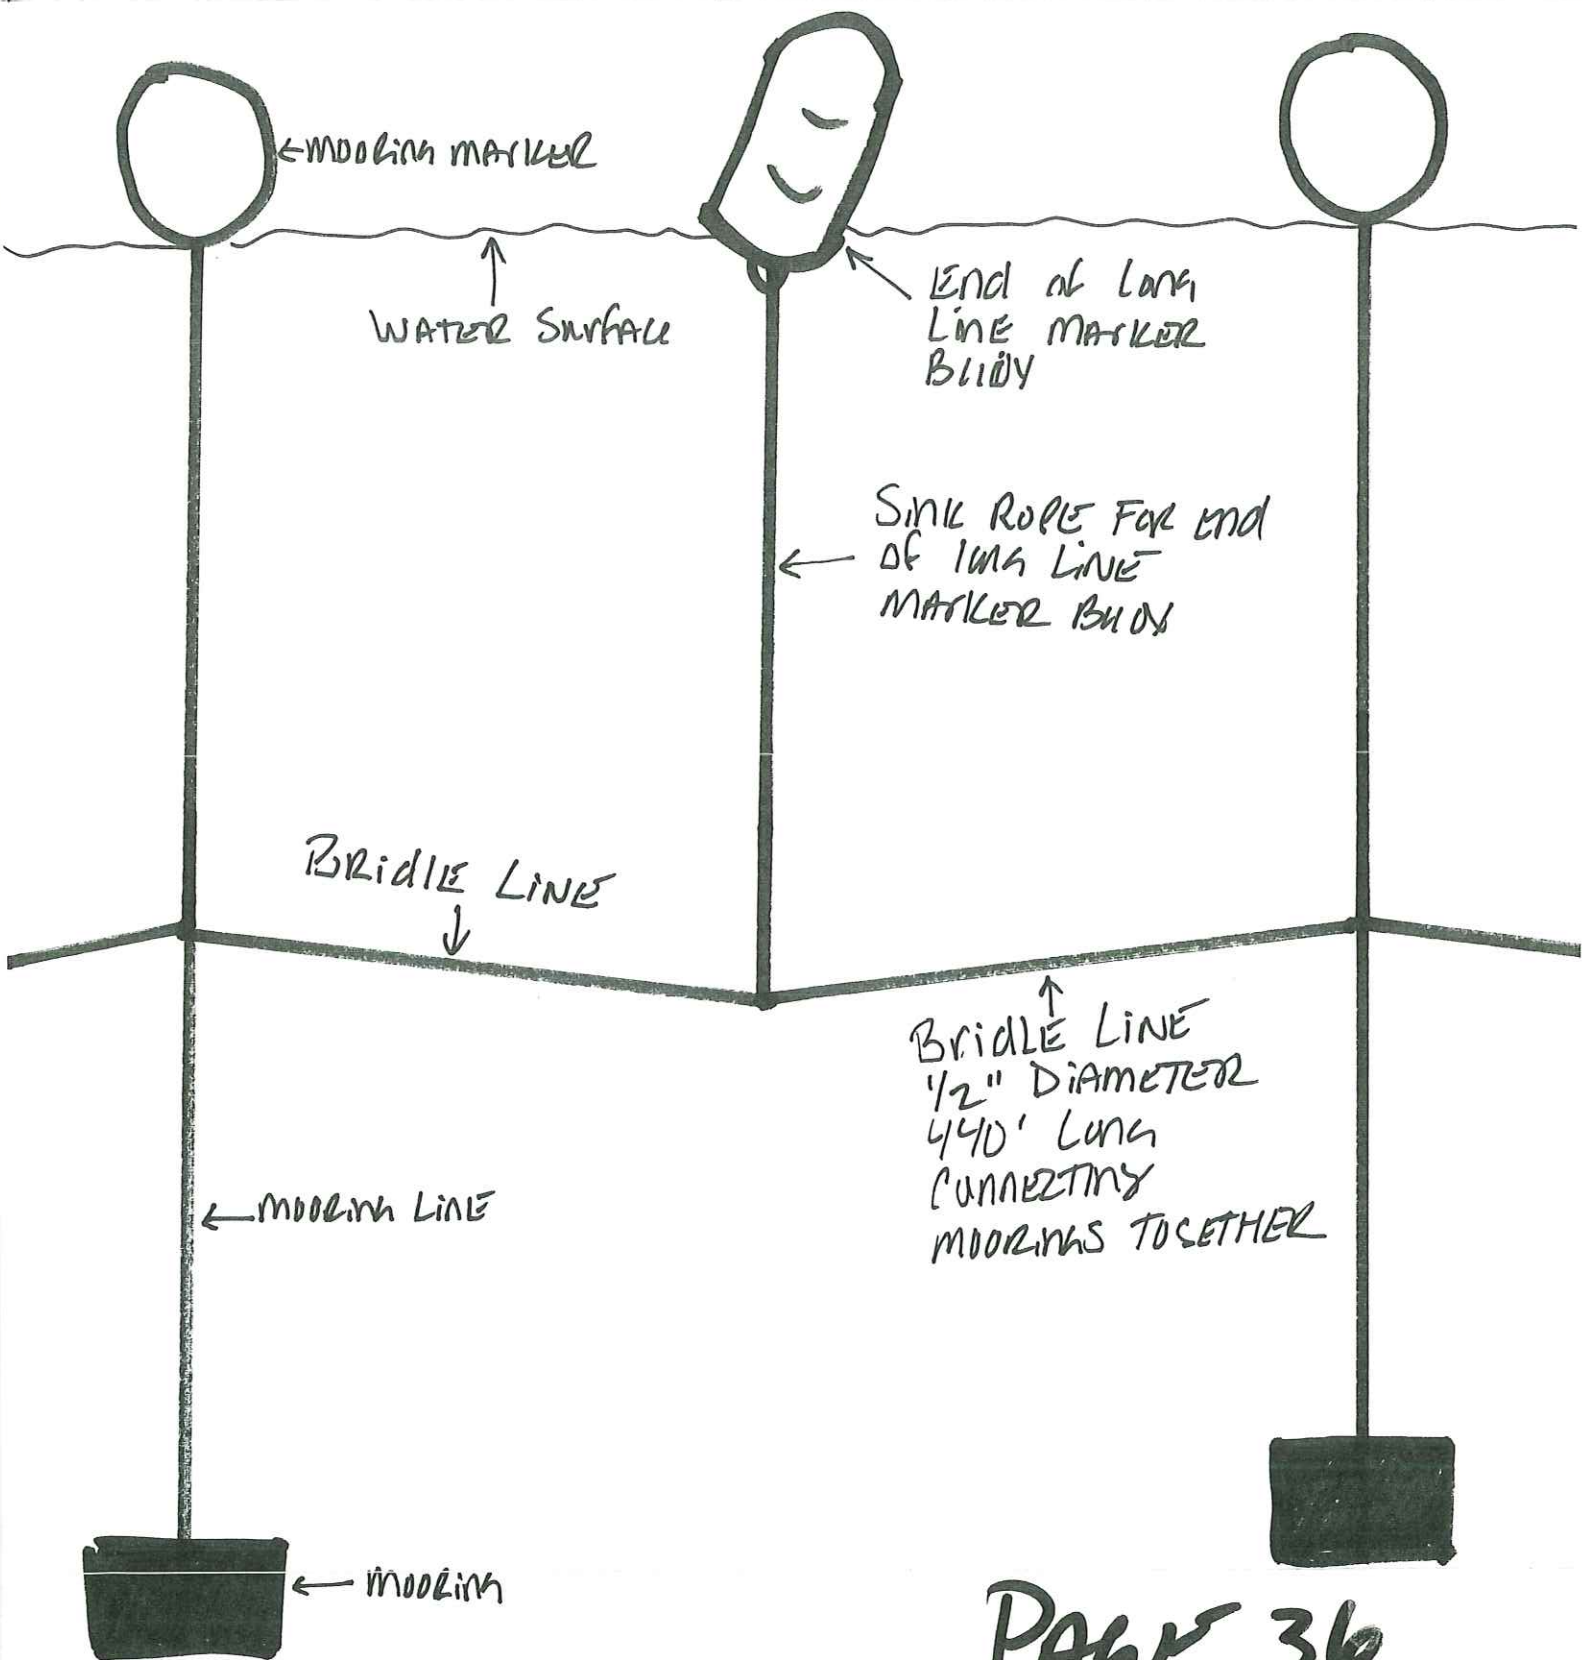 ←MOORING MARKER
WATER SURFACE
End of Long
LINE MARKER
BUOY
SINK ROPE FOR END
OF long LINE
MARKER BUOY
BRIDLE LINE
BRIDLE LINE
1/2" DIAMETER
440' Long
CONNECTING
MOORINGS TOGETHER
←MOORING LINE
←MOORING
PAGE 36